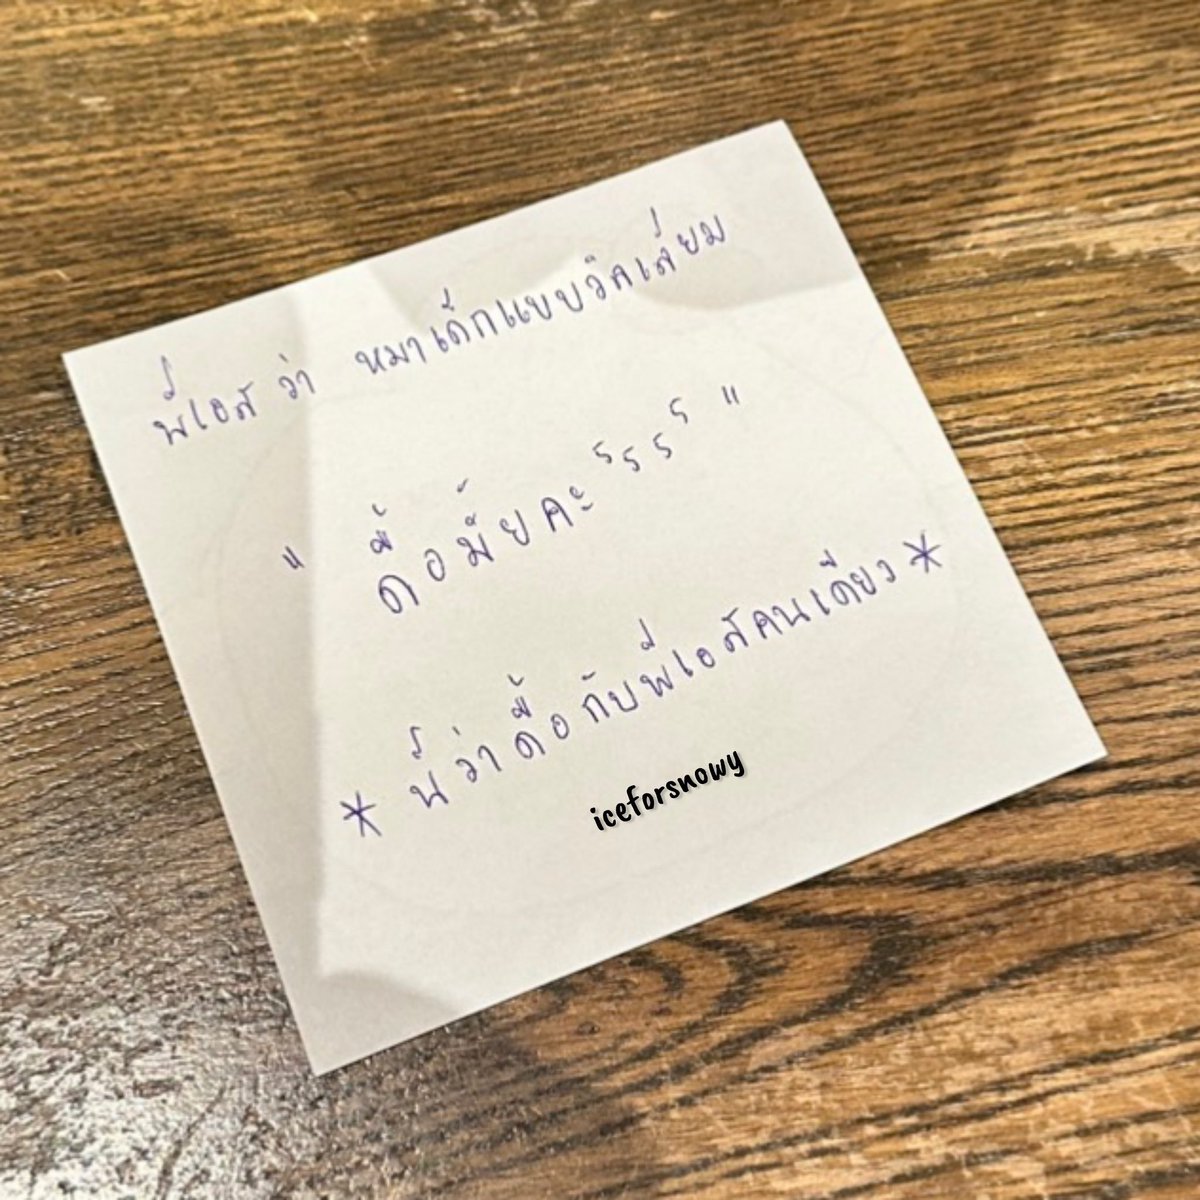 พี่เอส ว่า หมาเด็กแบบวิคเลี่ยม
" ดื้อมั้ยคะรรรร "
* นี่ว่าดื้อกับพี่เอสคนเดียว *
iceforsnowy